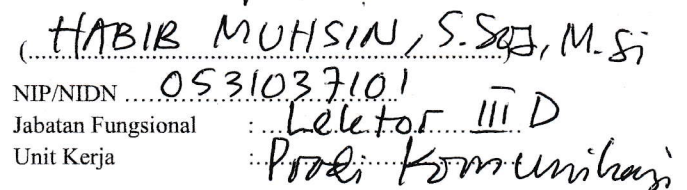 (HABIB MUHSIN, S.Sos, M.Si
NIP/NIDN 0531037101
Jabatan Fungsional : Lektor III D
Unit Kerja : Prodi Komunikasi